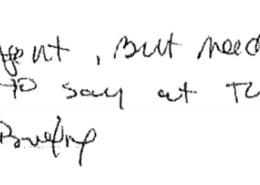 gent, But need
to say at TU
Briefing